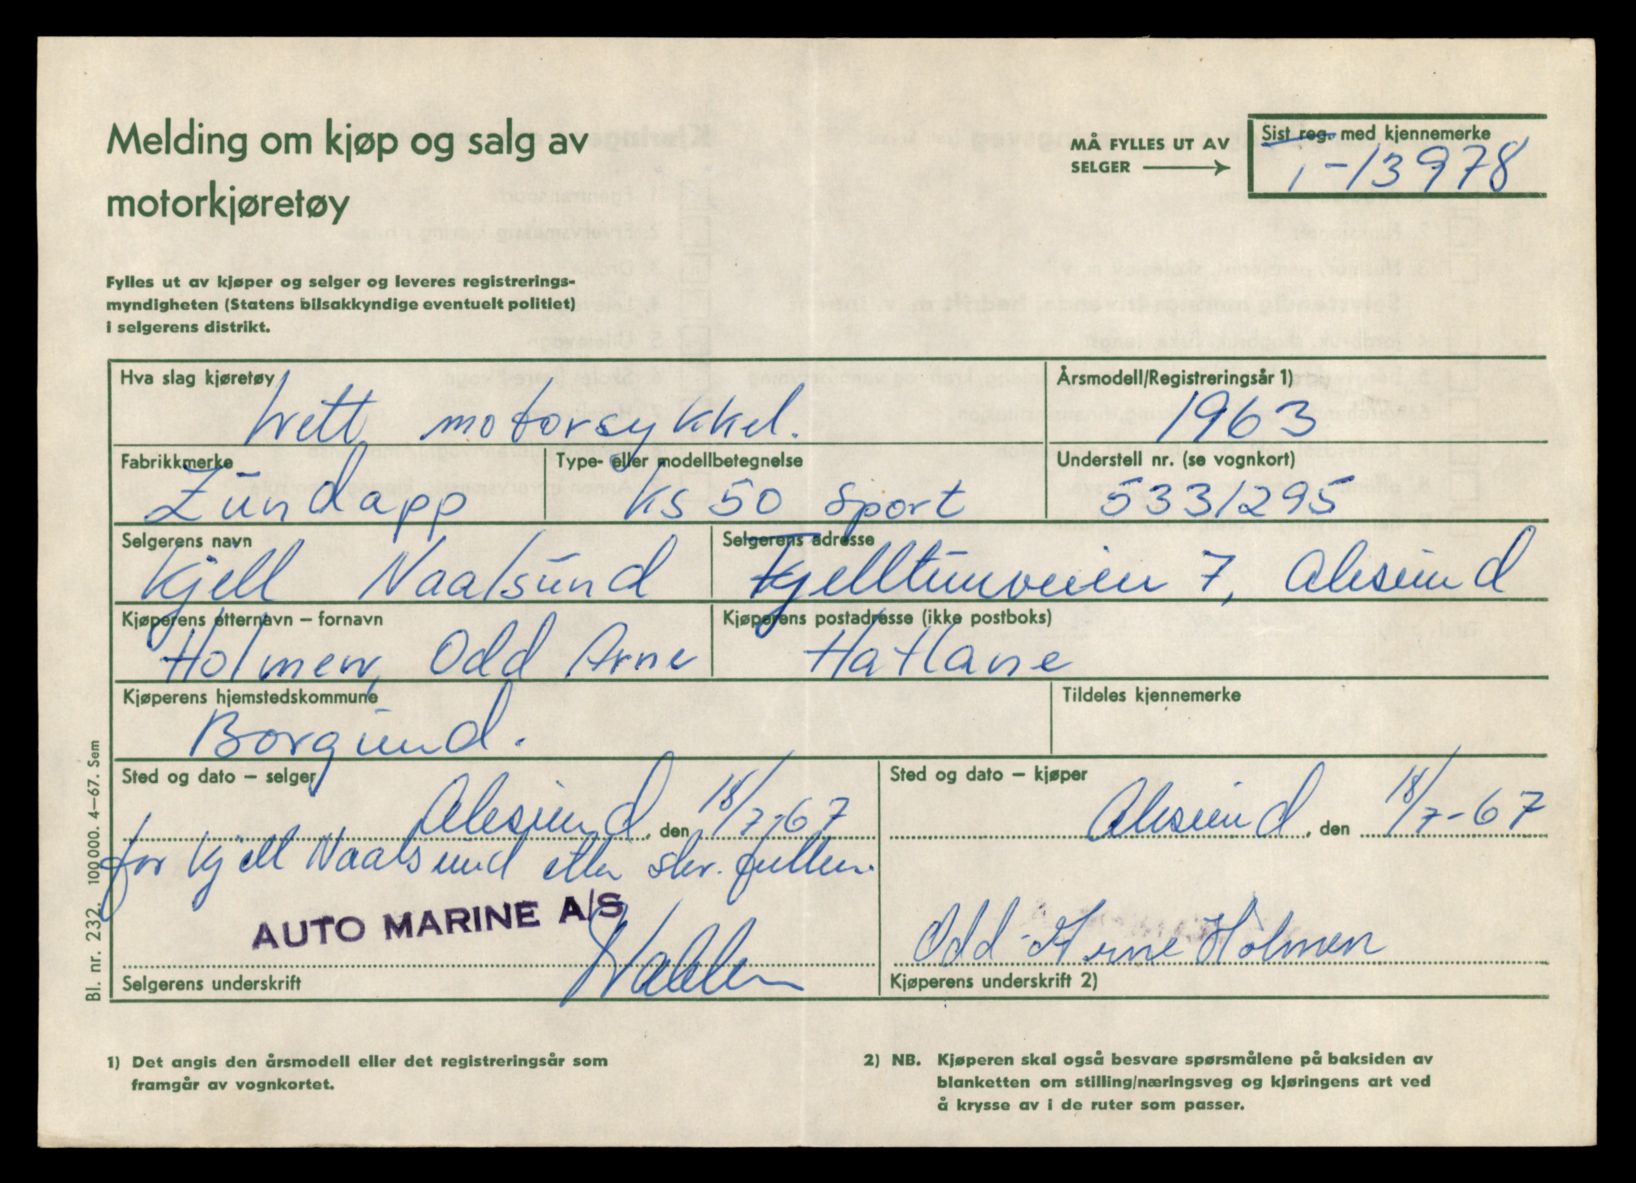 Melding om kjøp og salg av
motorkjøretøy
MÅ FYLLES UT AV
SELGER
Sist reg. med kjennemerke
T-13978
Fylles ut av kjøper og selger og leveres registrerings-
myndigheten (Statens bilsakkyndige eventuelt politiet)
i selgerens distrikt.
Hva slag kjøretøy
lvett motorsykkel.
Årsmodell/Registreringsår 1)
1963
Fabrikkmerke
Zündapp
Type- eller modellbetegnelse
KS 50 Sport
Understell nr. (se vognkort)
5331295
Selgerens navn
Kjell Naalsund
Selgerens adresse
Fjelltunveien 7, Alesund
Kjøperens etternavn – fornavn
Holmen, Odd Arne
Kjøperens postadresse (ikke postboks)
Hatlane
Kjøperens hjemstedskommune
Borgund.
Tildeles kjennemerke
Sted og dato – selger
Alesund, den 18/7-67
Sted og dato – kjøper
Alesund, den 18/7-67
for Kjell Naalsund etter skr. fullm.
AUTO MARINE A/S
Odd-Arne Holmen
Selgerens underskrift
Kjøperens underskrift 2)
Bl. nr. 232. 10000. 4–67. Sem
1) Det angis den årsmodell eller det registreringsår som
framgår av vognkortet.
2) NB. Kjøperen skal også besvare spørsmålene på baksiden av
blanketten om stilling/næringsveg og kjøringens art ved
å krysse av i de ruter som passer.